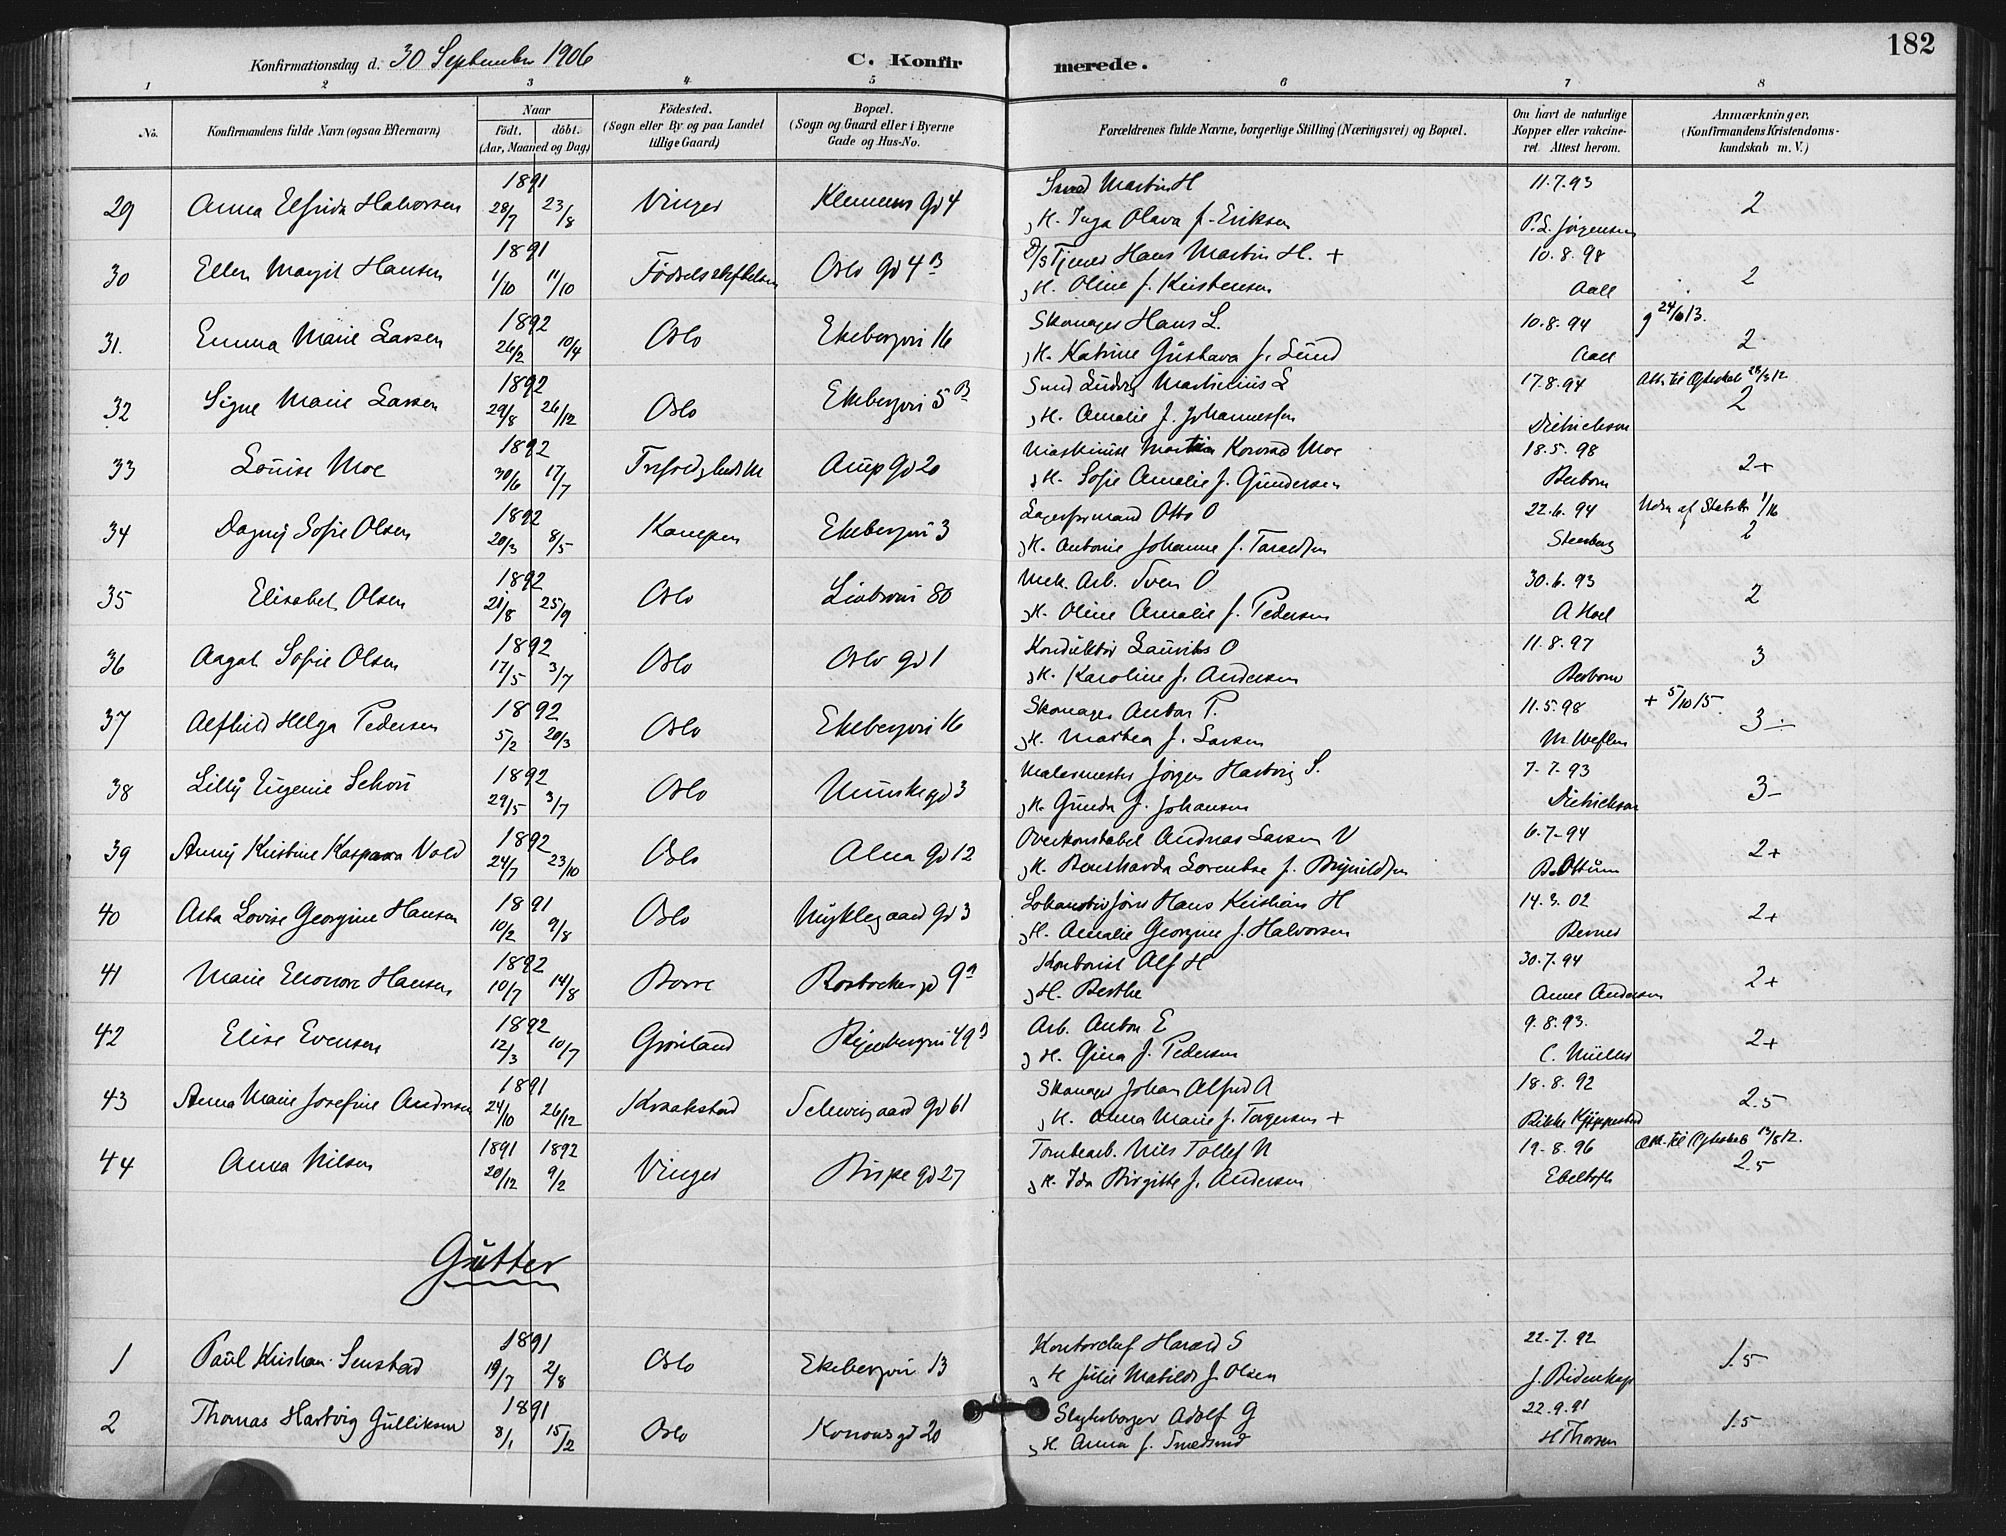 182
Konfirmationsdag d. 30 September 1906 C. Konfirmerede.
1 2 3 4 5 6 7 8
No. Konfirmandens fulde Navn (ogsaa Efternavn) Naar født. døbt. (Aar, Maaned og Dag) Fødested. (Sogn eller By og paa Landet tillige Gaard) Bopæl. (Sogn og Gaard eller i Byerne Gade og Hus-No. Forældrenes fulde Navne, borgerlige Stilling (Næringsvei) og Bopæl. Om havt de naturlige Kopper eller vakcineret. Attest herom. Anmærkninger. (Konfirmandens Kristendomskundskab m. V.)
1891 Smed Martin H 11.7.93
29 Anna Elfrida Halvorsen 28/7 23/8 Vinger Klemens gd 4 2
H. Inga Olava f. Eriksen P.L. Jørgensen
1891 Tjener Hans Martin H. + 10.8.98
30 Ellen Margit Hansen 1/10 11/10 Fødselsstiftelsen Oslo gd 4 B 2
H. Oline f. Kristensen Aall
1892 Skomager Hans L. 10.8.94 g 24/6 13.
31. Emma Marie Larsen 26/2 10/4 Oslo Ekebergvei 16 2
H. Katrine Gustava f. Lund Aall
1892 Smed Ludvig Martinius L 17.8.94 Att. til Ægteskab 28/3 12
32 Signe Marie Larsen 29/8 26/12 Oslo Ekebergvei 5 B 2
H. Amalie f. Johannessen Dietrichson
1892 Maskinist Martin Konrad Moe 18.5.98
33 Louise Moe 30/6 17/7 Trefoldigheds M Arup gd 20 2+
H. Sofie Amalie f. Gundersen Berborn
1892 Lagerformand Otto O 22.6.94 Udm af Statsk 1/16
34 Dagny Sofie Olsen 20/3 8/5 Kampen Ekebergvei 3 2
H. Antonie Johanne f. Steenberg
1892 Mek. Arb. Sven O 30.6.93
35 Elisabet Olsen 21/8 25/9 Oslo Liabrovei 80 2
H. Oline Amalie f. Pedersen A Hoel
1892 Konduktør Laurits O 11.8.97
36 Aagot Sofie Olsen 17/5 3/7 Oslo Oslo gd 1 3
H. Karoline f. Andersen Berborn
1892 Skomager Anton P. 11.5.98 + 5/10 15.
37 Alfhild Helga Pedersen 5/2 20/3 Oslo Ekebergvei 16 3 ÷
H. Marthea f. Larsen M. Weflen
1892 Malermester Jørgen Hartvig S. 7.7.93
38 Lilly Eugenie Schou 29/5 3/7 Oslo Munkegd 3 3-
H. Gunda f. Johansen Dietrichson
1892 Overkonstabel Andreas Larsen V 6.7-94
39 Anny Kristine Kaspara Vold 24/7 23/10 Oslo Alna gd 12 2+
H. Bernharda Lorentse f. Brynildsen B. Ottum
1891 Hans Kristian H 14.3.02
40 Asta Lovise Georgine Hansen 10/2 9/8 Oslo Nyklegaard gd 3 2+
H. Amalie Georgine f. Halvorsen Berner
1892 Kontorist Alf H 30.7.94
41 Marie Eleonore Hansen 10/7 14/8 Borre Rosbachs gd 9 a 2+
H. Berthe Anne Andersen
1892 Arb. Anton E 9.8.93.
42 Elise Evensen 12/3 10/7 Grønland Ryenbergvei 49 B 2+
H. Gina f. Pedersen C. Müller
1891 Skomager Johan Alfred A 18.8.92
43 Anna Marie Josefine Andersen 24/10 26/12 Kraakstad Schweigaard gd 61 2.5
H. Anna Marie f. Torgersen + Rikke Kjøppestad
1891 1892 Tomtearb. Nils Tollef N 19-8.96 Att. til Ægteskab 13/8 12.
44 Anna Nilsen 20/12 9/2 Vinger Bispe gd 27 2.5
H. Ida Birgitte f. Andersen Ebeltoft
Gutter
1891 Kontorchef Harald S 22.7.92
1 Paul Kristian Senstad 19/7 2/8 Oslo Ekebergvei 13 1.5
H Julie Matilde f. Olsen J. Bidenkap
1891 Adolf G 22.9.91
2 Thomas Hartvig Gulliksen 8/1 15/2 Oslo Konows gd 20 1.5
H. Anna f. Smedsrud H Thorsen